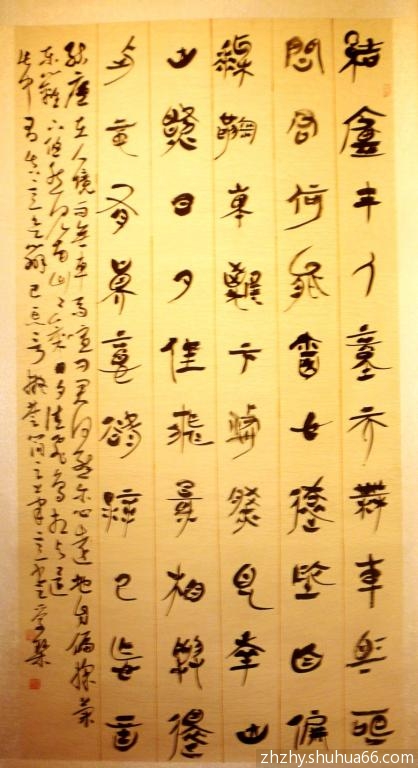 結廬在人境而無車馬喧
問君何能爾心遠地自偏
採菊東籬下悠然見南山
山氣日夕佳飛鳥相與還
此中有真意欲辨已忘言
結廬在人境而無車馬喧問君何能爾心遠地自偏採菊
東籬下悠然見南山山氣日夕佳飛鳥相與還
此中有真意欲辨已忘言
zhzhy.shuhua66.com